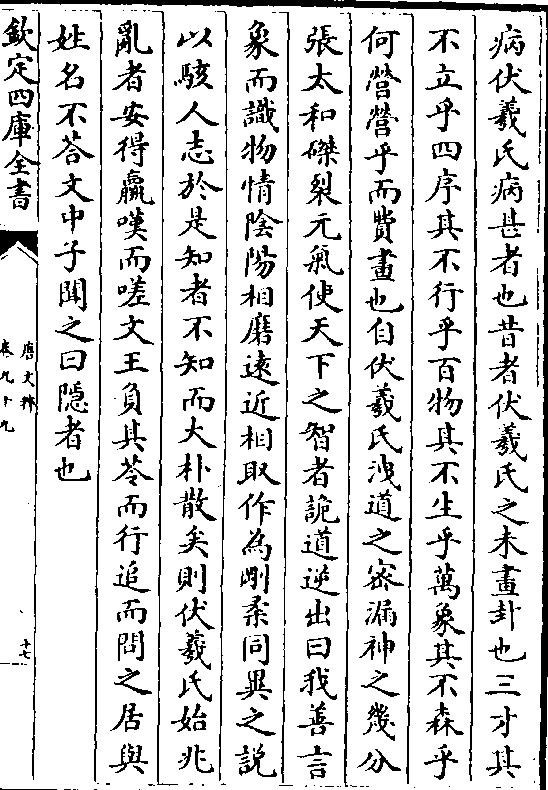 病伏羲氏病甚者也昔者伏羲氏之未畫卦也三才其
不立乎四序其不行乎百物其不生乎萬象其不森乎
何營營乎而費畫也自伏羲氏洩道之宻漏神之幾分
張太和磔裂元氣使天下之智者詭道逆出曰我善言
象而識物情陰陽相磨遠近相取作為剛柔同異之說
以駭人志於是知者不知而大朴散矣則伏羲氏始兆
亂者安得羸嘆而嗟文王負其苓而行追而問之居與
姓名不荅文中子聞之曰隱者也
欽定四庫全書
唐文粹
卷九十九
十七